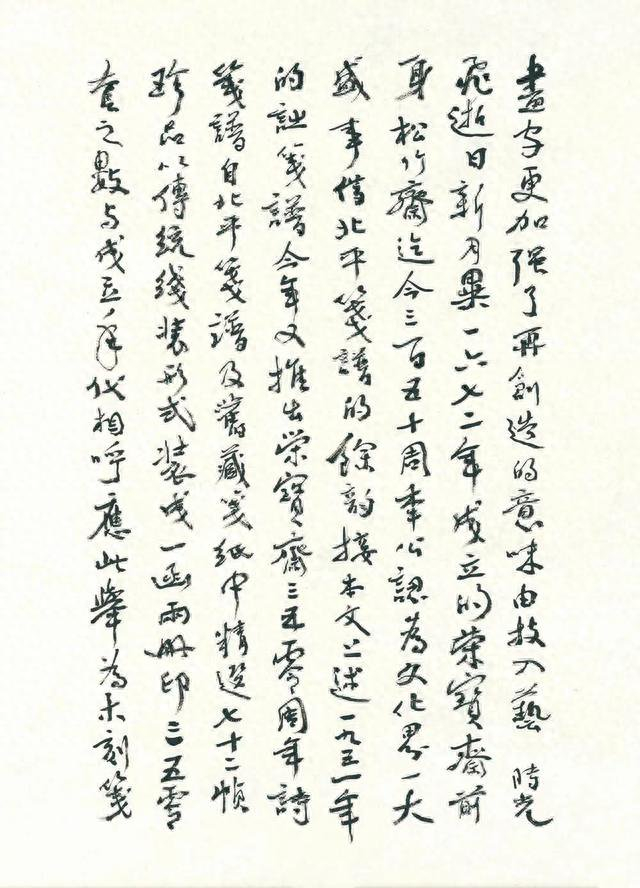 畫字更加强了再創造的意味由技入藝 時光
飛逝日新月異一六七二年成立的榮寶齋前
身松竹齋迄今三百五十周年公認為文化界一大
盛事借北平箋譜的餘韵接本文上述一九五一年
的詩箋譜今年又推出榮寶齋三五零周年詩
箋譜自北平箋譜及舊藏箋紙中精選七十二幀
珍品以傳統綫裝形式裝成一函兩册印三五零
套之數与成立年代相呼應此舉為木刻箋